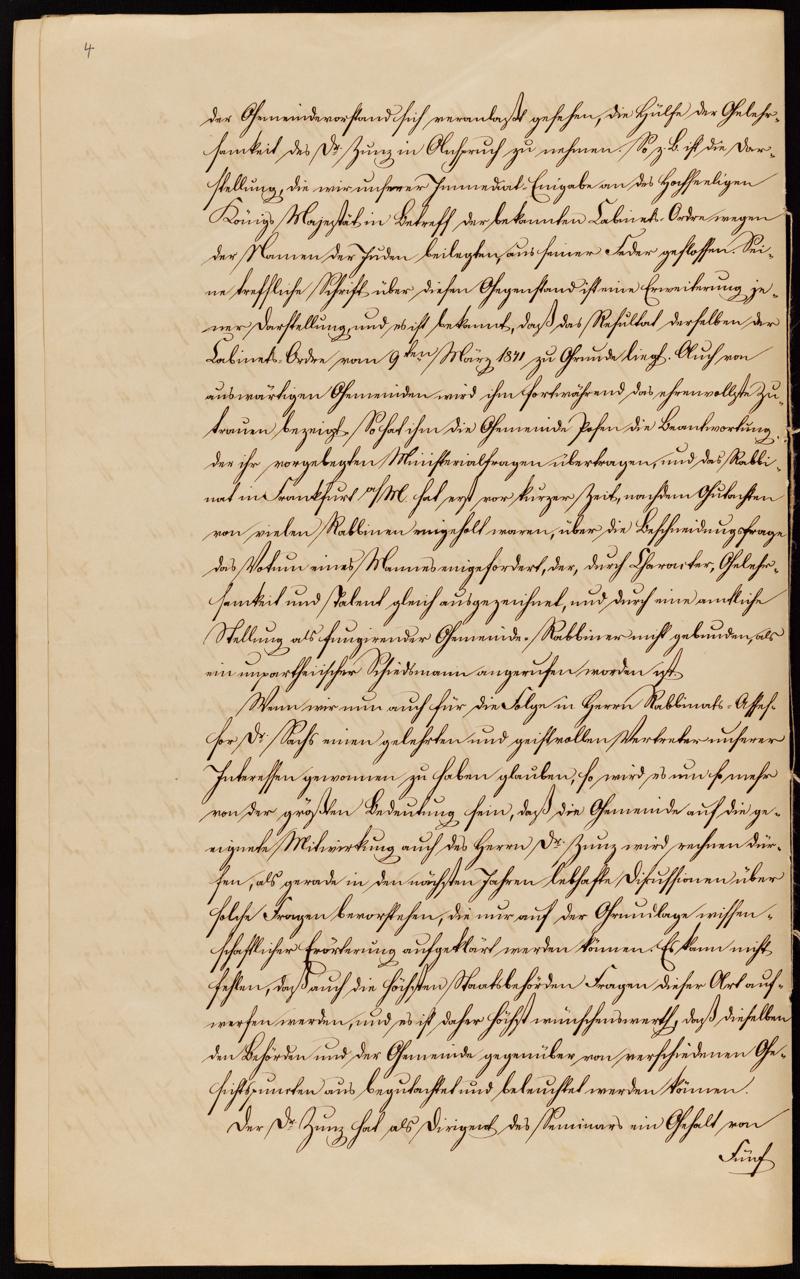 4
der Gemeindevorstand sich veranlaßt gesehen, die Hülfe der Gelehr-
samkeit des Dr. Zunz in Anspruch zu nehmen. So z. B. ist die Dar-
stellung, die wir unserer Immediat-Eingabe an des Hochseeligen
Königs Majestät in Betreff der bekannten Cabinets-Ordre wegen
der Namen der Juden beilegten, aus seiner Feder geflossen. Sei-
ne treffliche Schrift über diesen Gegenstand ist eine Erweiterung je-
ner Darstellung, und es ist bekannt, daß das Resultat derselben der
Cabinets-Ordre vom 9ten März 1841 zu Grunde liegt. Auch von
auswärtigen Gemeinden wird ihm fortwährend das ehrenvollste Zu-
trauen bezeigt. So hat ihm die Gemeinde Posen die Beantwortung
der ihr vorgelegten Ministerialfragen übertragen, und das Rabbi-
nat in Frankfurt a/M. hat erst vor kurzer Zeit, nachdem Gutachten
von vielen Rabbinen eingeholt waren, über die Beschneidungsfrage
das Votum eines Mannes eingefordert, der, durch Character, Gelehr-
samkeit und Talent gleich ausgezeichnet, und durch eine amtliche
Stellung als fungirender Gemeinde-Rabbiner nicht gebunden, als
ein unpartheiischer Schiedsmann angerufen worden ist.
Wenn wir nun auch für die Folge in Herrn Rabbinats-Asses-
sor Dr. Sachs einen gelehrten und geistvollen Vertreter unserer
Interessen gewonnen zu haben glauben, so wird es um so mehr
von der größten Bedeutung sein, daß die Gemeinde auf die ge-
eignete Mitwirkung auch des Herrn Dr. Zunz wird rechnen dür-
fen, als gerade in den nächsten Jahren lebhafte Discussionen über
solche Fragen bevorstehen, die nur auf der Grundlage wissen-
schaftlicher Erörterung aufgeklärt werden können. Es kann nicht
fehlen, daß auch die höchsten Staatsbehörden Fragen dieser Art auf-
werfen werden, und es ist daher höchst wünschenswerth, daß dieselben
den Behörden und der Gemeinde gegenüber von verschiedenen Ge-
sichtspuncten aus begutachtet und beleuchtet werden können.
Der Dr. Zunz hat als Dirigent des Seminars ein Gehalt von
Fünf